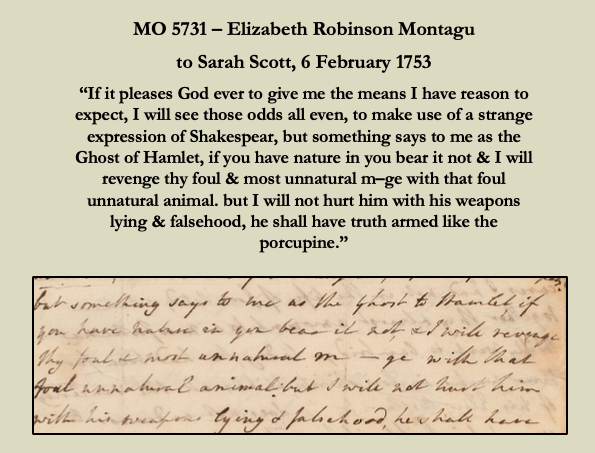 MO 5731 – Elizabeth Robinson Montagu
to Sarah Scott, 6 February 1753
“If it pleases God ever to give me the means I have reason to
expect, I will see those odds all even, to make use of a strange
expression of Shakespear, but something says to me as the
Ghost of Hamlet, if you have nature in you bear it not & I will
revenge thy foul & most unnatural m–ge with that foul
unnatural animal. but I will not hurt him with his weapons
lying & falsehood, he shall have truth armed like the
porcupine.”
but something says to me as the Ghost to Hamlet if
you have nature in you bear it not, & I will revenge
thy foul & most unnatural m — ge with that
foul unnatural animal. but I will not hurt him
with his weapons lying & falsehood, he shall have